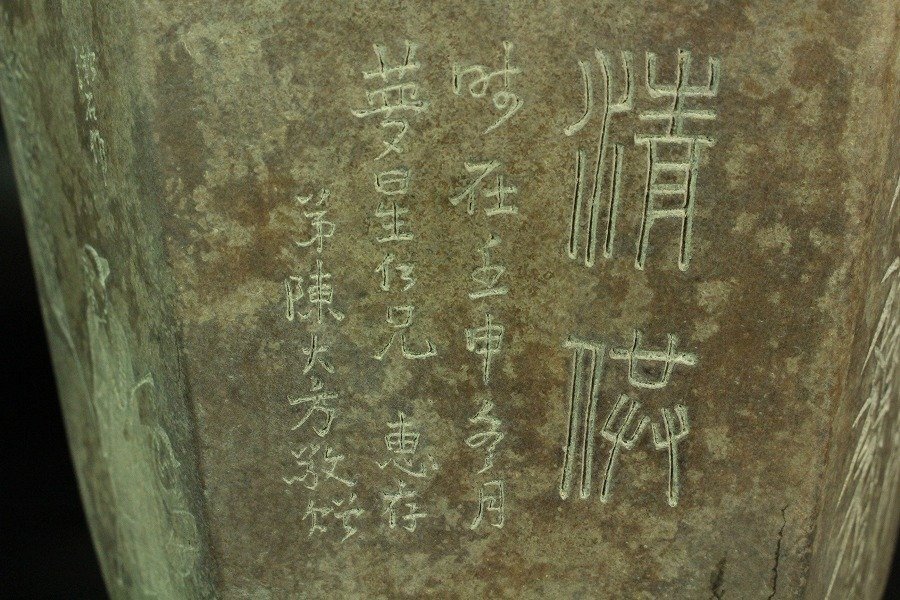 清供
时在壬申冬月
梦星仁兄 惠存
弟陳大方敬贈